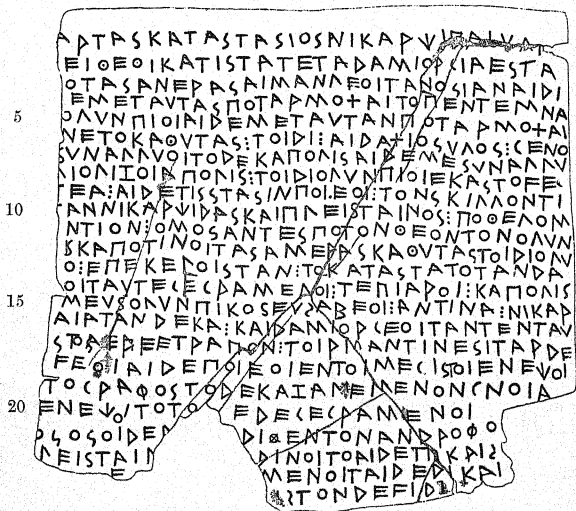 ΑΡΤΑΣΚΑΤΑΣΤΑΣΙΟΣΝΙΚΑΡΧΙ
ΕΙΘΕΟΙΚΑΤΙΣΤΑΤΕΤΑΔΑΜΙΟΡΓΙΑΕΣΤΑ
ΟΤΑΣΑΝΕΡΑΣΑΙΜΑΝΛΕΟΙΤΑΝΟΣΙΑΝΑΙΔΙ
ΕΜΕΤΑΥΤΑΣΠΟΤΑΡΜΟΞΑΙΤΟΠΕΝΤΕΜΝΑ
5 ΟΛΥΝΠΙΟΙΑΙΔΕΜΕΤΑΥΤΑΝΠΟΤΑΡΜΟΞΑΙ
ΝΕΤΟΚΑΘΥΤΑΣ⋮ΤΟΙΔΙ⋮ΑΙΔΑΞΙΟΣΥΛΟΣ⋮ΓΕΝΟ
ΣΥΝΑΛΛΥΟΙΤΟΔΕΚΑΠΟΛΙΣΑΙΔΕΜΕΣΥΝΑΛΛΥ
ΛΙΟΛΙΖΟΙΑΠΟΛΙΣ⋮ΤΟΙΔΙΟΛΥΝΠΙΟΙΕΚΑΣΤΟϜΕ
ΤΕΑ⋮ΑΙΔΕΤΙΣΣΤΑΣΙΝΠΟΙΕΟΙ⋮ΤΟΝΣΚΙΛΛΟΝΤΙ
10 ΑΝΝΙΚΑΡΧΙΔΑΣΚΑΙΠΛΕΙΣΤΑΙΝΟΣ⋮ΠΟΘΕΛΟΜ
ΝΤΙΟΝ⋮ΟΜΟΣΑΝΤΕΣΠΟΤΟΝΘΕΟΝΤΟΝΟΛΥΝ
ΚΑΠΟΤΙΝΟΙΤΑΣΑΜΕΡΑΣΚΑΘΥΤΑΣΤΟΙΔΙΟΛΥ
Ο⋮ΕΠΕΚΕΡΟΙΣΤΑΝ⋮ΤΟΚΑΤΑΣΤΑΤΟΤΑΝΔΑ
ΟΙΤΑΥΤΕΓΕΓΡΑΜΕΝΟΙ⋮ΤΕΠΙΑΡΟΙ⋮ΚΑΠΟΛΙΣ
15 ΜΕΥΣΟΛΥΝΠΙΚΟΣΕΥΣΑΒΕΟΙ⋮ΑΝΤΙΝΑ⋮ΝΙΚΑΡ
ΑΙΑΤΑΝΔΕΚΑ⋮ΚΑΙΔΑΜΙΟΡΓΕΟΙΤΑΝΤΕΝΤΑΥ
ΤΟΙΡΑΝΤΙΝΕΣΙΤΑΡΔΕ
ϜΕΘΟΙΑΙΔΕΠΟΙΕΟΙΕΝΤΟΙΜΕΓΙΣΤΟΙΕΝΕΧΟΙ
ΤΟΓΡΑΦΟΣΤΟΔΕΚΑΙΑΜΕΙΜΕΝΟΝΓΝΟΙΑ
20 ΕΝΕΧΟΙΤΟΤΟ ΕΔΕΓΕΓΡΑΜΕΝΟΙ
ΟΣΟΣΟΙΔΕΝ ΕΝΤΟΝΑΝΔΡΟΦΟ
ΛΕΙΣΤΑΙΝ ΔΙΝΟΙΤΟΑΙΔΕΤΙΚΑΙΣ
Ε ΜΕΝΟΙΤΑΙΔΕΜΕΔΚΑΙ
ΣΤΟΝΔΕϜΙΔ